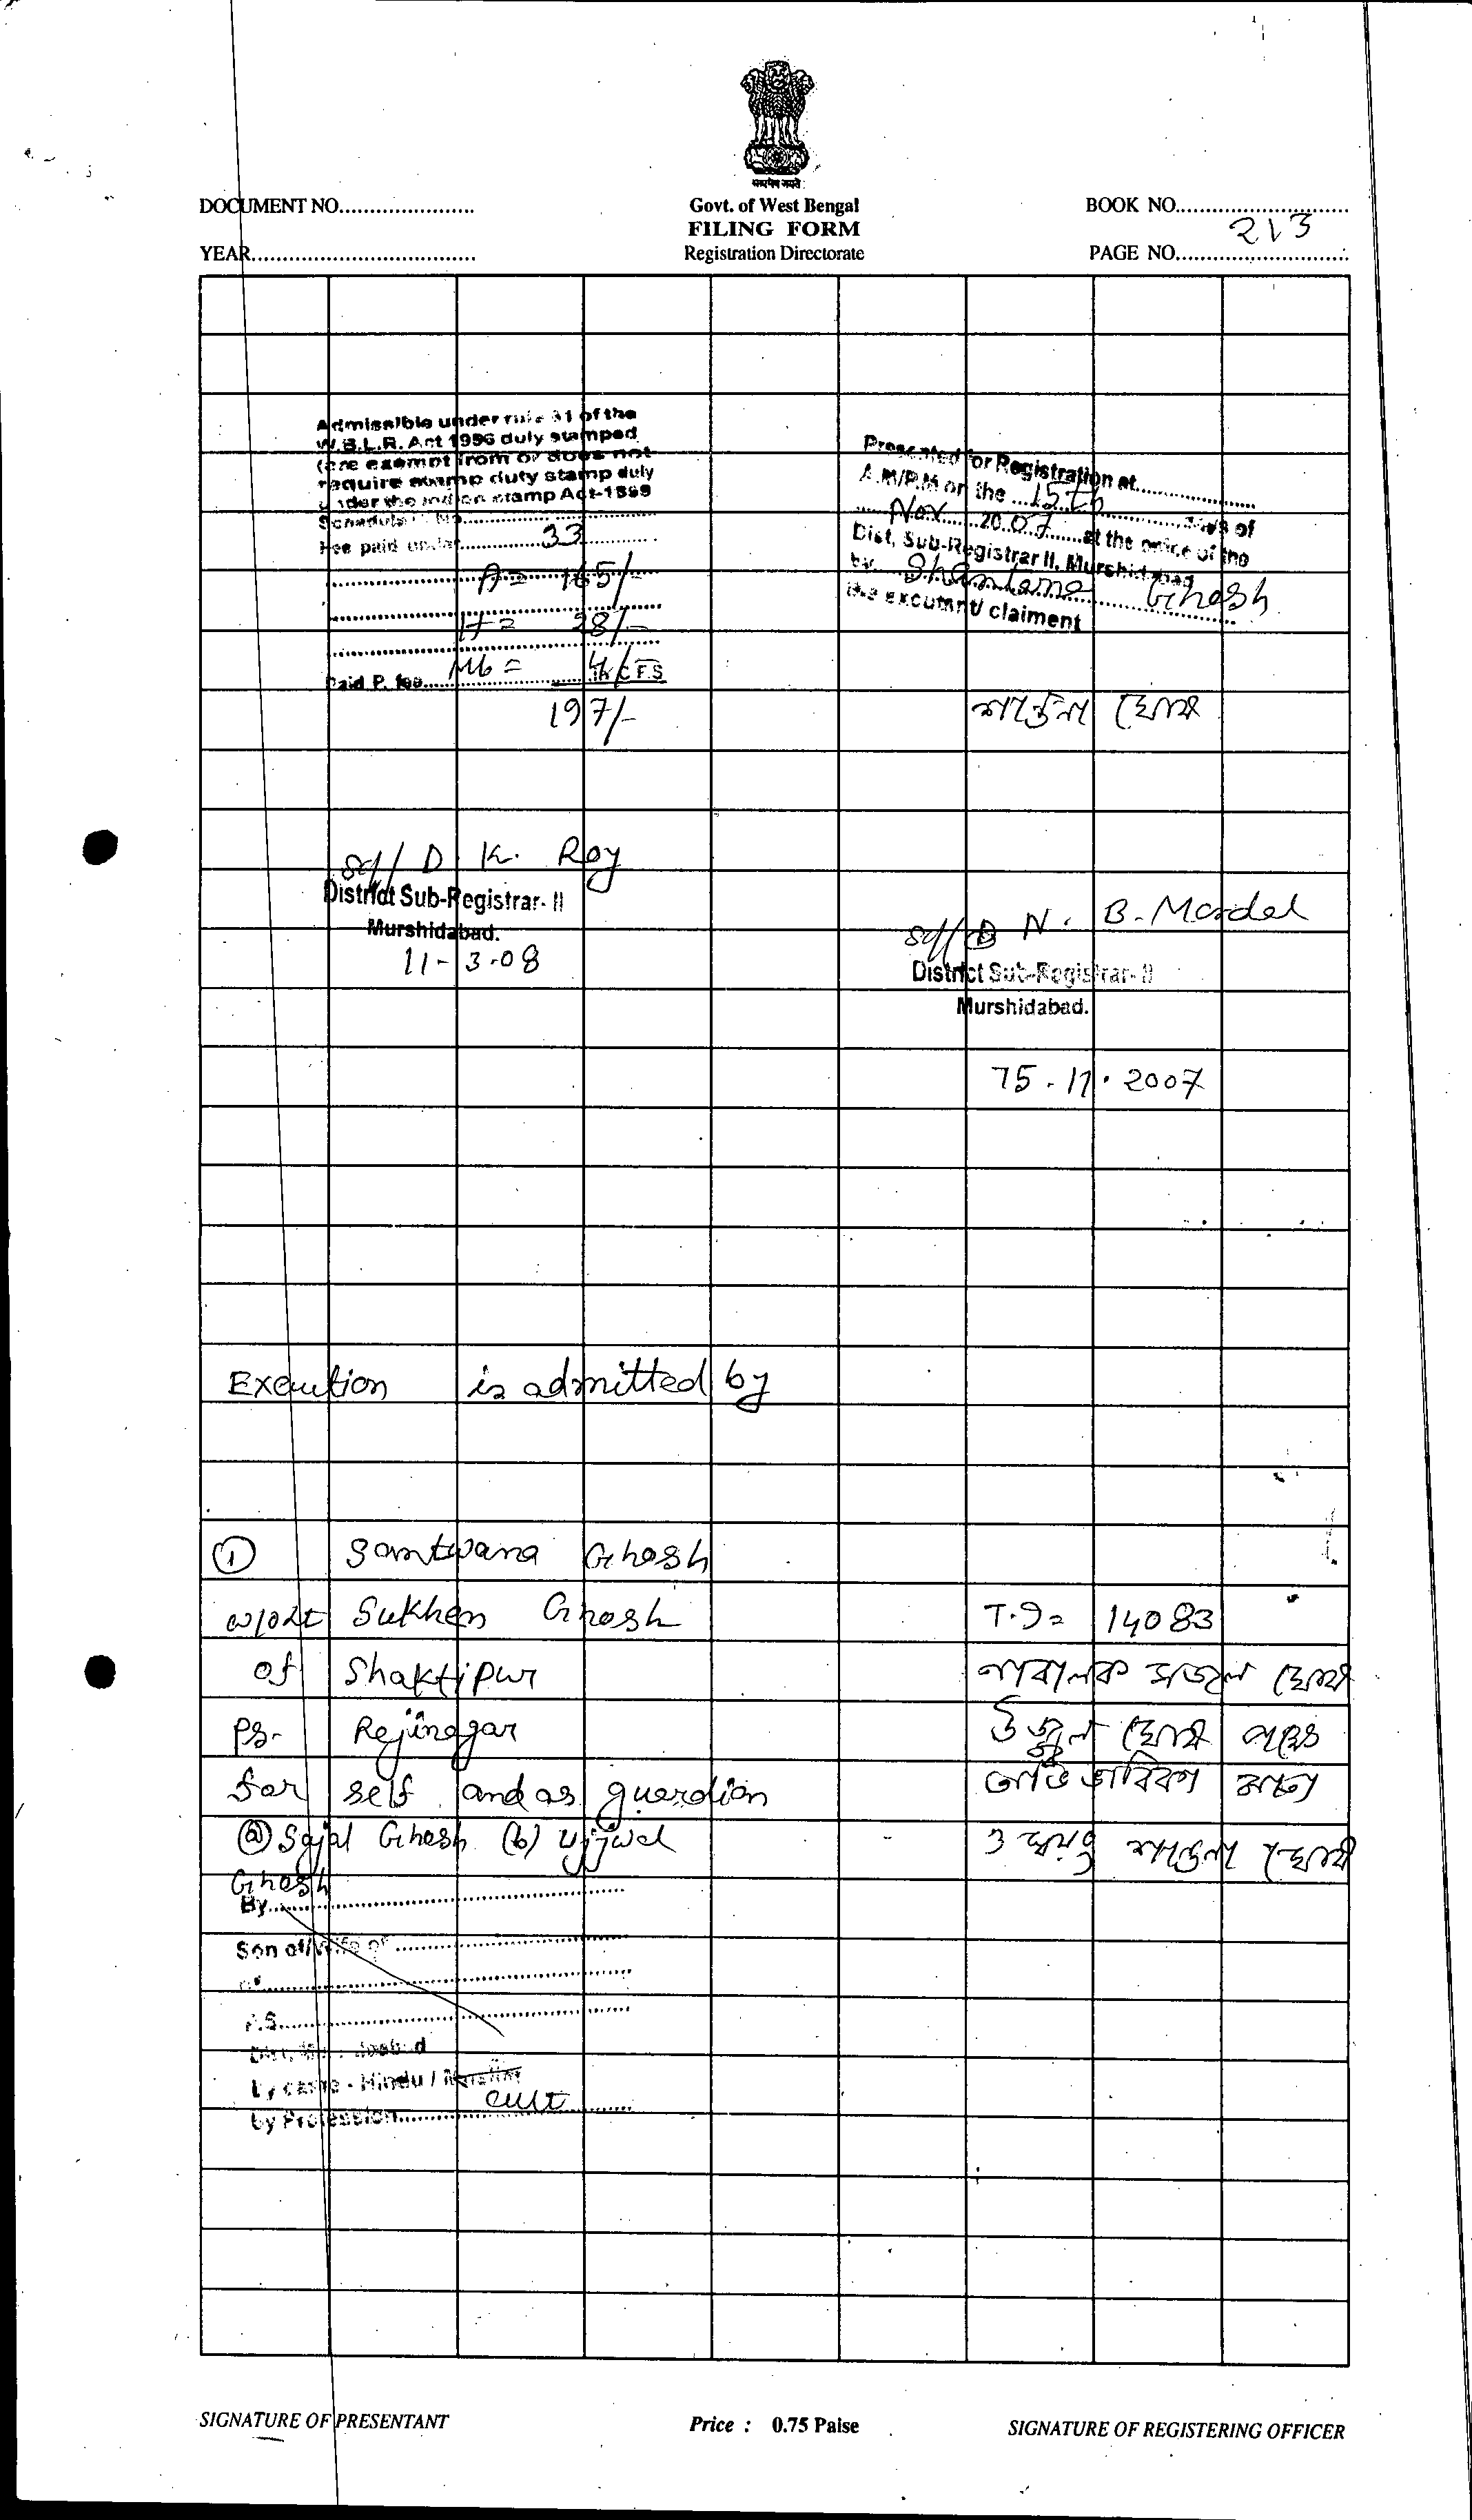 सत्यमेव जयते
DOCUMENT NO......................
Govt. of West Bengal
BOOK NO.............................
FILING FORM
213
YEAR......................................
Registration Directorate
PAGE NO.............................
Admissible under rule 31 of the
W.B.L.R. Act 1996 duly stamped
(are exempt from or does not
require stamp duty stamp duly
under the Indian stamp Act-1899
Schedule
Fee paid under 33
A = 165/-
H = 28/-
Paid P. fee Mb = 4/- C.F.S
197/-
Presented for Registration at
A.M/P.M on the 15th
Nov 2007 at the office of the
Dist, Sub-Registrar II, Murshidabad
by Shantana Ghosh
the excutant/ claiment
শান্তনা ঘোষ
Sd/ D. K. Roy
District Sub-Registrar- II
Murshidabad.
11-3-08
Sd/ N. B. Mondal
District Sub-Registrar- II
Murshidabad.
15.11.2007
Execution is admitted by
① Santwana Ghosh
w/o Lt Sukhen Ghosh
of Shaktipur
PS- Rejinagar
for self and as guardian
(a) Sajal Ghosh (b) Ujjwal
Ghosh
T.I= 14083
নাবালক সজল ঘোষ
উজ্জ্বল ঘোষ পক্ষে
অভিভাবিকা মাতা
ও স্বয়ং শান্তনা ঘোষ
By
Son of/Wife of
of
P.S.
by caste - Hindu / Muslim
by Profession cult
SIGNATURE OF PRESENTANT
Price : 0.75 Paise
SIGNATURE OF REGISTERING OFFICER